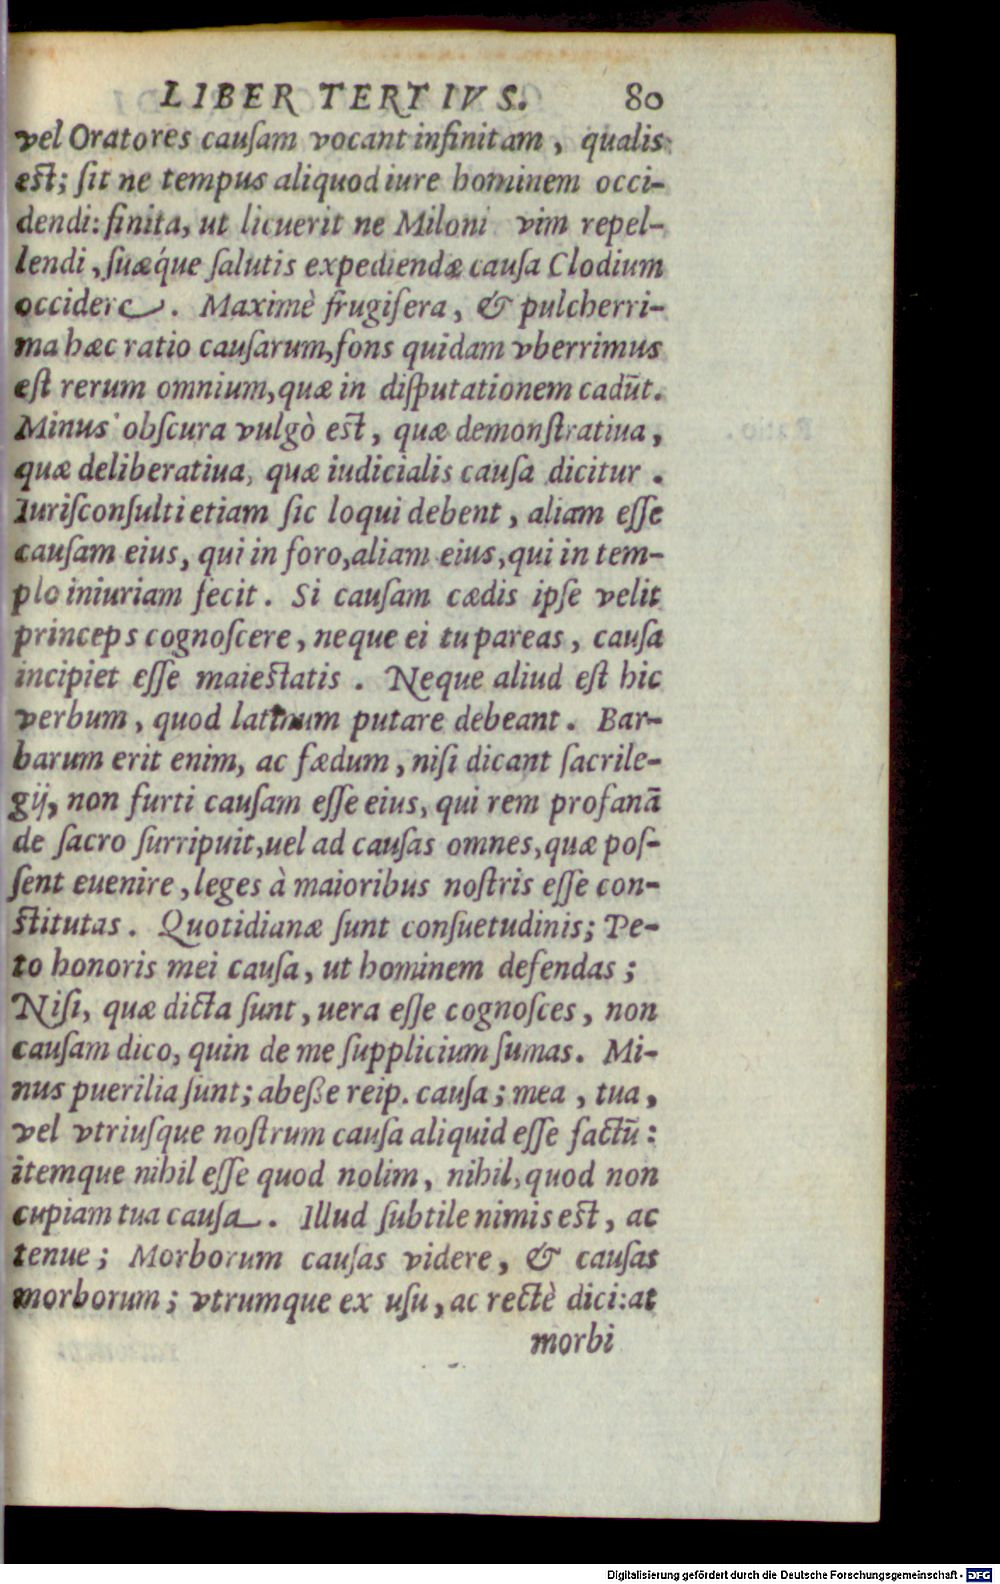 LIBER TERTIVS. 80
vel Oratores cauſam vocant infinitam, qualis
est; ſit ne tempus aliquod iure hominem occi-
dendi: finita, ut licuerit ne Miloni vim repel-
lendi, ſuæq́ue ſalutis expediendæ cauſa Clodium
occidere. Maximè frugifera, & pulcherri-
ma hæc ratio cauſarum, fons quidam vberrimus
eſt rerum omnium, quæ in diſputationem cadūt.
Minus obſcura vulgò est, quæ demonſtratiua,
quæ deliberatiua, quæ iudicialis cauſa dicitur.
Iuriſconſulti etiam ſic loqui debent, aliam eſſe
cauſam eius, qui in foro, aliam eius, qui in tem-
plo iniuriam fecit. Si cauſam cædis ipſe velit
princeps cognoſcere, neque ei tu pareas, cauſa
incipiet eſſe maiestatis. Neque aliud eſt hic
verbum, quod latinum putare debeant. Bar-
barum erit enim, ac fædum, niſi dicant ſacrile-
gij, non furti cauſam eſſe eius, qui rem profanā
de ſacro ſurripuit, uel ad cauſas omnes, quæ poſ-
ſent euenire, leges à maioribus noſtris eſſe con-
stitutas. Quotidianæ ſunt conſuetudinis; Pe-
to honoris mei cauſa, ut hominem defendas;
Niſi, quæ dicta ſunt, uera eſſe cognoſces, non
cauſam dico, quin de me ſupplicium ſumas. Mi-
nus puerilia ſunt; abeße reip. cauſa; mea, tua,
vel vtriuſque noſtrum cauſa aliquid eſſe factū:
itemque nihil eſſe quod nolim, nihil, quod non
cupiam tua cauſa. Illud ſubtile nimis est, ac
tenue; Morborum cauſas videre, & cauſas
morborum; vtrumque ex uſu, ac rectè dici: at
morbi
Digitalisierung gefördert durch die Deutsche Forschungsgemeinschaft - DFG